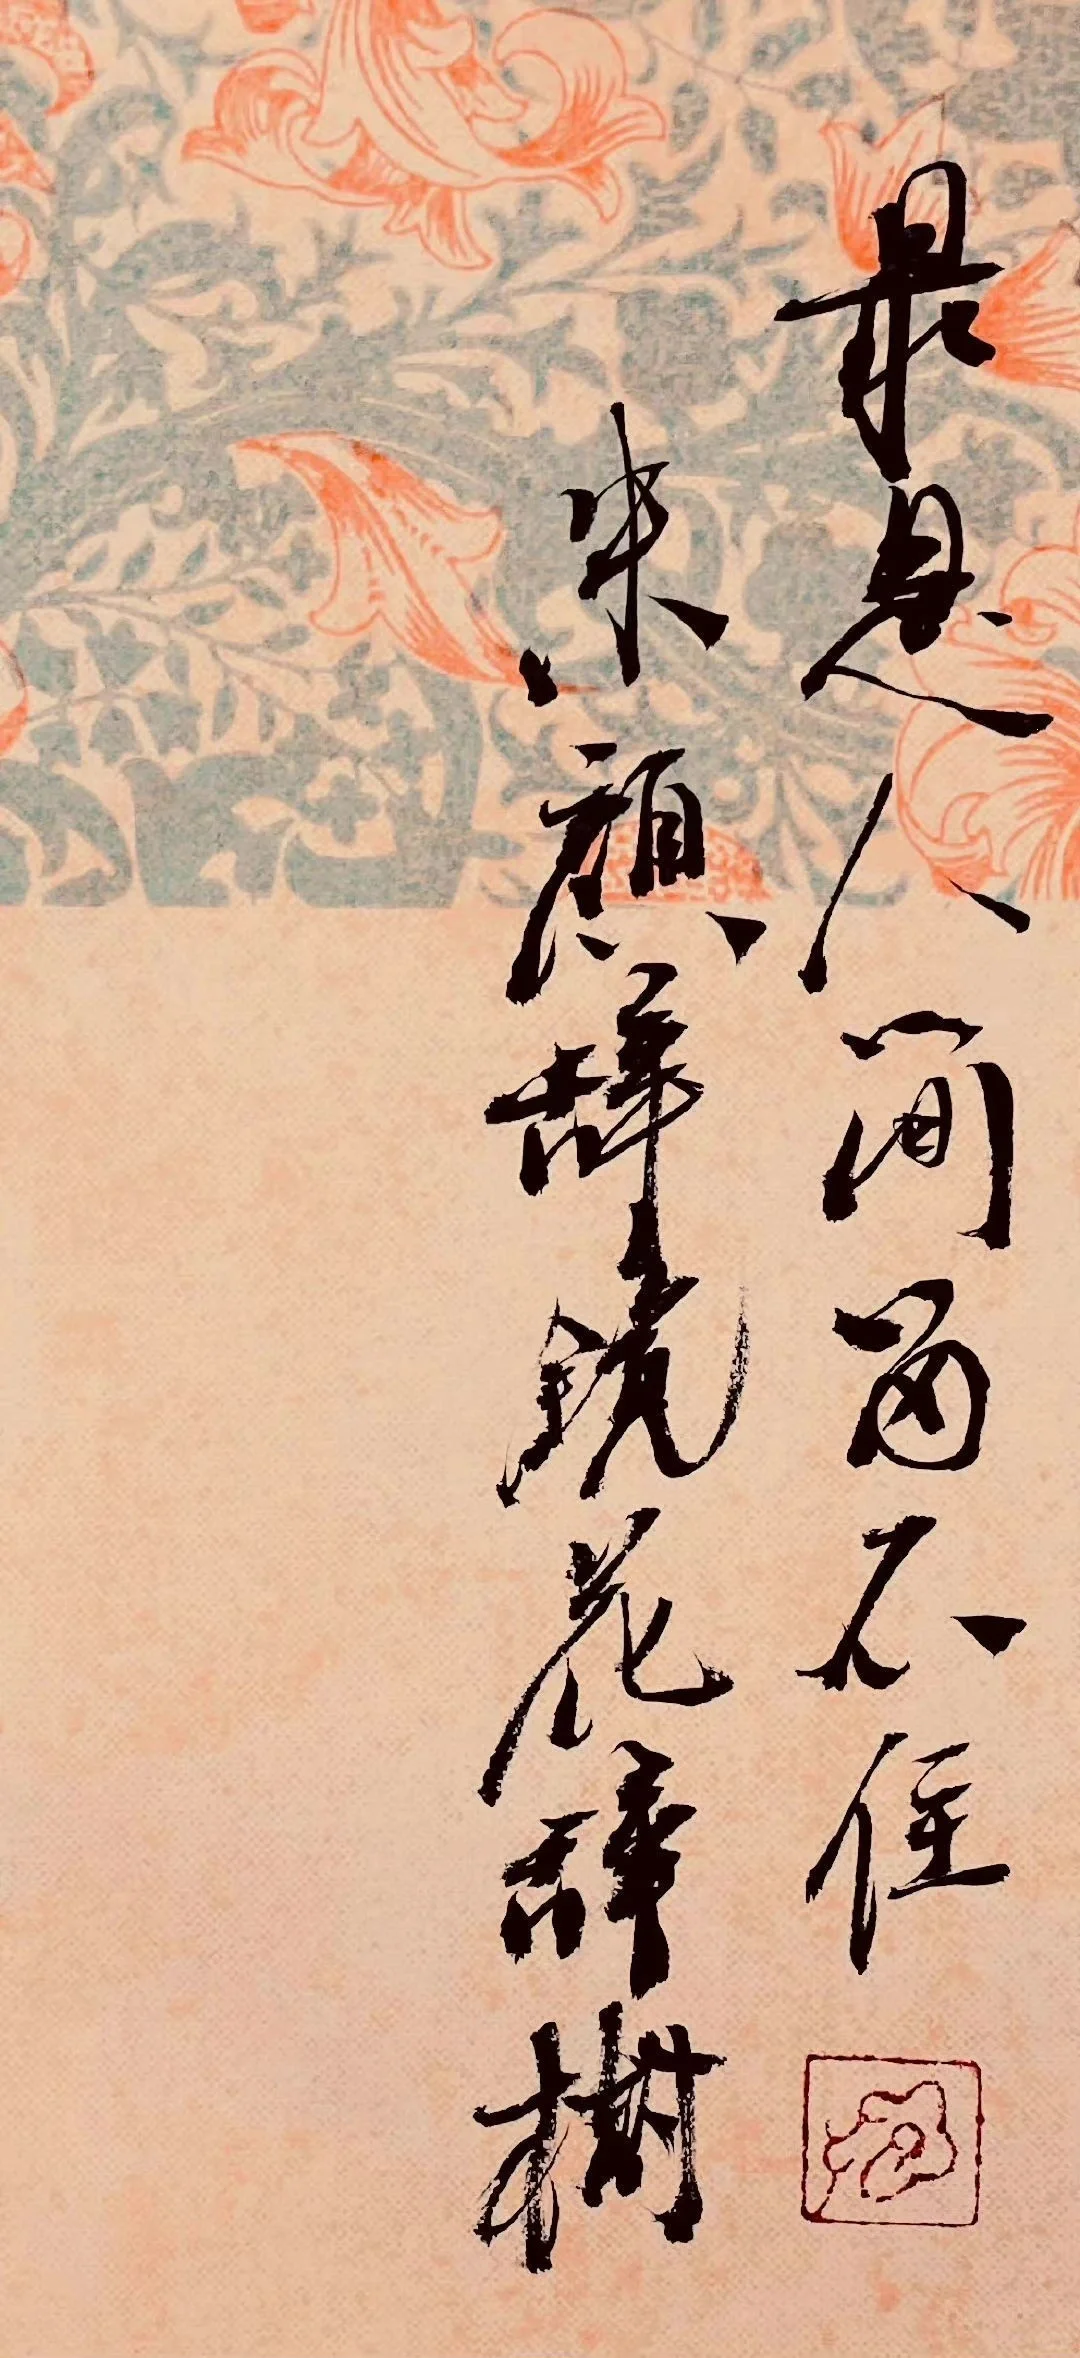 最是人间留不住
朱颜辞镜花辞树